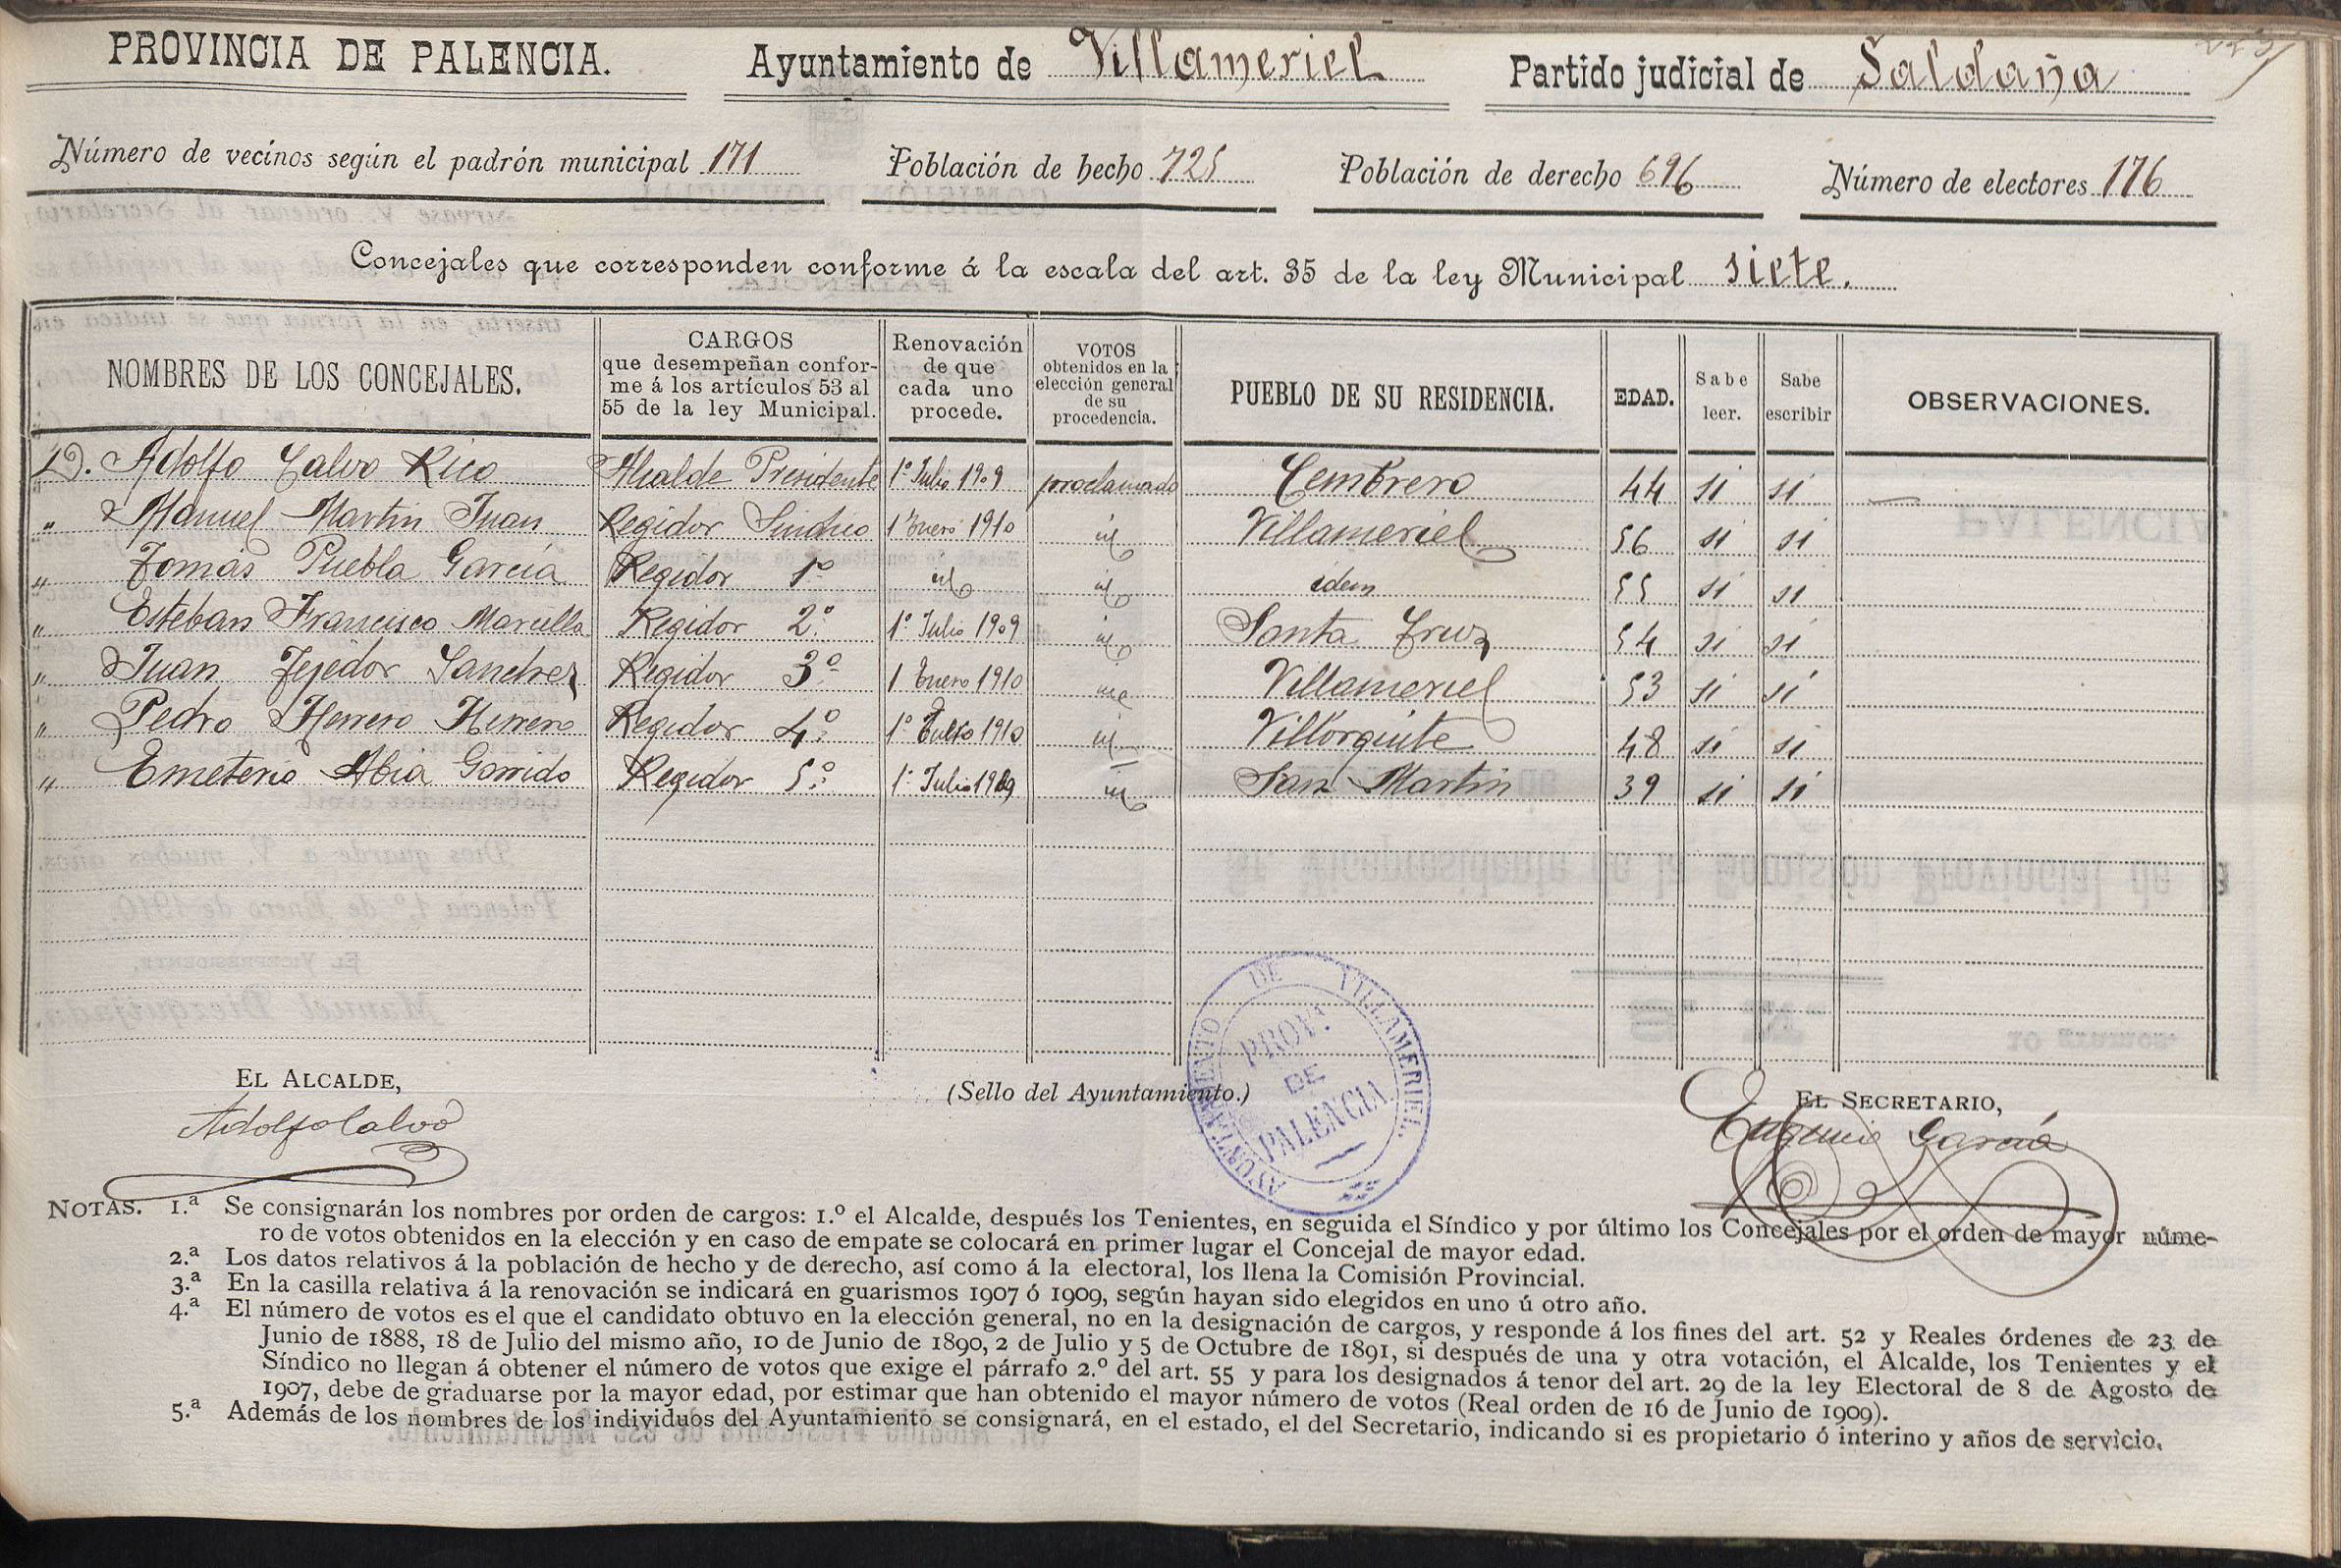 PROVINCIA DE PALENCIA. Ayuntamiento de Villameriel Partido judicial de Saldaña
Número de vecinos según el padrón municipal 171 Población de hecho 725 Población de derecho 696 Número de electores 176
Concejales que corresponden conforme á la escala del art. 35 de la ley Municipal siete.
NOMBRES DE LOS CONCEJALES. CARGOS que desempeñan confor-me á los artículos 53 al 55 de la ley Municipal. Renovación de que cada uno procede. VOTOS obtenidos en la elección general de su procedencia. PUEBLO DE SU RESIDENCIA. EDAD. Sabe leer. Sabe escribir OBSERVACIONES.
D. Adolfo Calvo Rico Alcalde Presidente 1º Julio 1909 proclamado Cembrero 44 si si —
" Manuel Martin Juan Regidor Sindico 1 Enero 1910 id Villameriel 56 si si
" Tomás Puebla García Regidor 1º id id idem 55 si si
" Esteban Francisco Marcilla Regidor 2º 1º Julio 1909 id Santa Cruz 54 si si
" Juan Tejedor Sanchez Regidor 3º 1 Enero 1910 id Villameriel 53 si si
" Pedro Herrero Herrero Regidor 4º 1º Enero 1910 id Villorquite 48 si si
" Emeterio Abia Garrido Regidor 5º 1º Julio 1909 id San Martin 39 si si
EL ALCALDE,
Adolfo Calvo
(Sello del Ayuntamiento.)
AYUNTAMIENTO DE VILLAMERIEL
PROVª.
DE
PALENCIA
EL SECRETARIO,
Eugenio García
NOTAS. 1.ª Se consignarán los nombres por orden de cargos: 1.º el Alcalde, después los Tenientes, en seguida el Síndico y por último los Concejales por el orden de mayor núme-
ro de votos obtenidos en la elección y en caso de empate se colocará en primer lugar el Concejal de mayor edad.
2.ª Los datos relativos á la población de hecho y de derecho, así como á la electoral, los llena la Comisión Provincial.
3.ª En la casilla relativa á la renovación se indicará en guarismos 1907 ó 1909, según hayan sido elegidos en uno ú otro año.
4.ª El número de votos es el que el candidato obtuvo en la elección general, no en la designación de cargos, y responde á los fines del art. 52 y Reales órdenes de 23 de
Junio de 1888, 18 de Julio del mismo año, 10 de Junio de 1890, 2 de Julio y 5 de Octubre de 1891, si después de una y otra votación, el Alcalde, los Tenientes y el
Síndico no llegan á obtener el número de votos que exige el párrafo 2.º del art. 55 y para los designados á tenor del art. 29 de la ley Electoral de 8 de Agosto de
1907, debe de graduarse por la mayor edad, por estimar que han obtenido el mayor número de votos (Real orden de 16 de Junio de 1909).
5.ª Además de los nombres de los individuos del Ayuntamiento se consignará, en el estado, el del Secretario, indicando si es propietario ó interino y años de servicio.